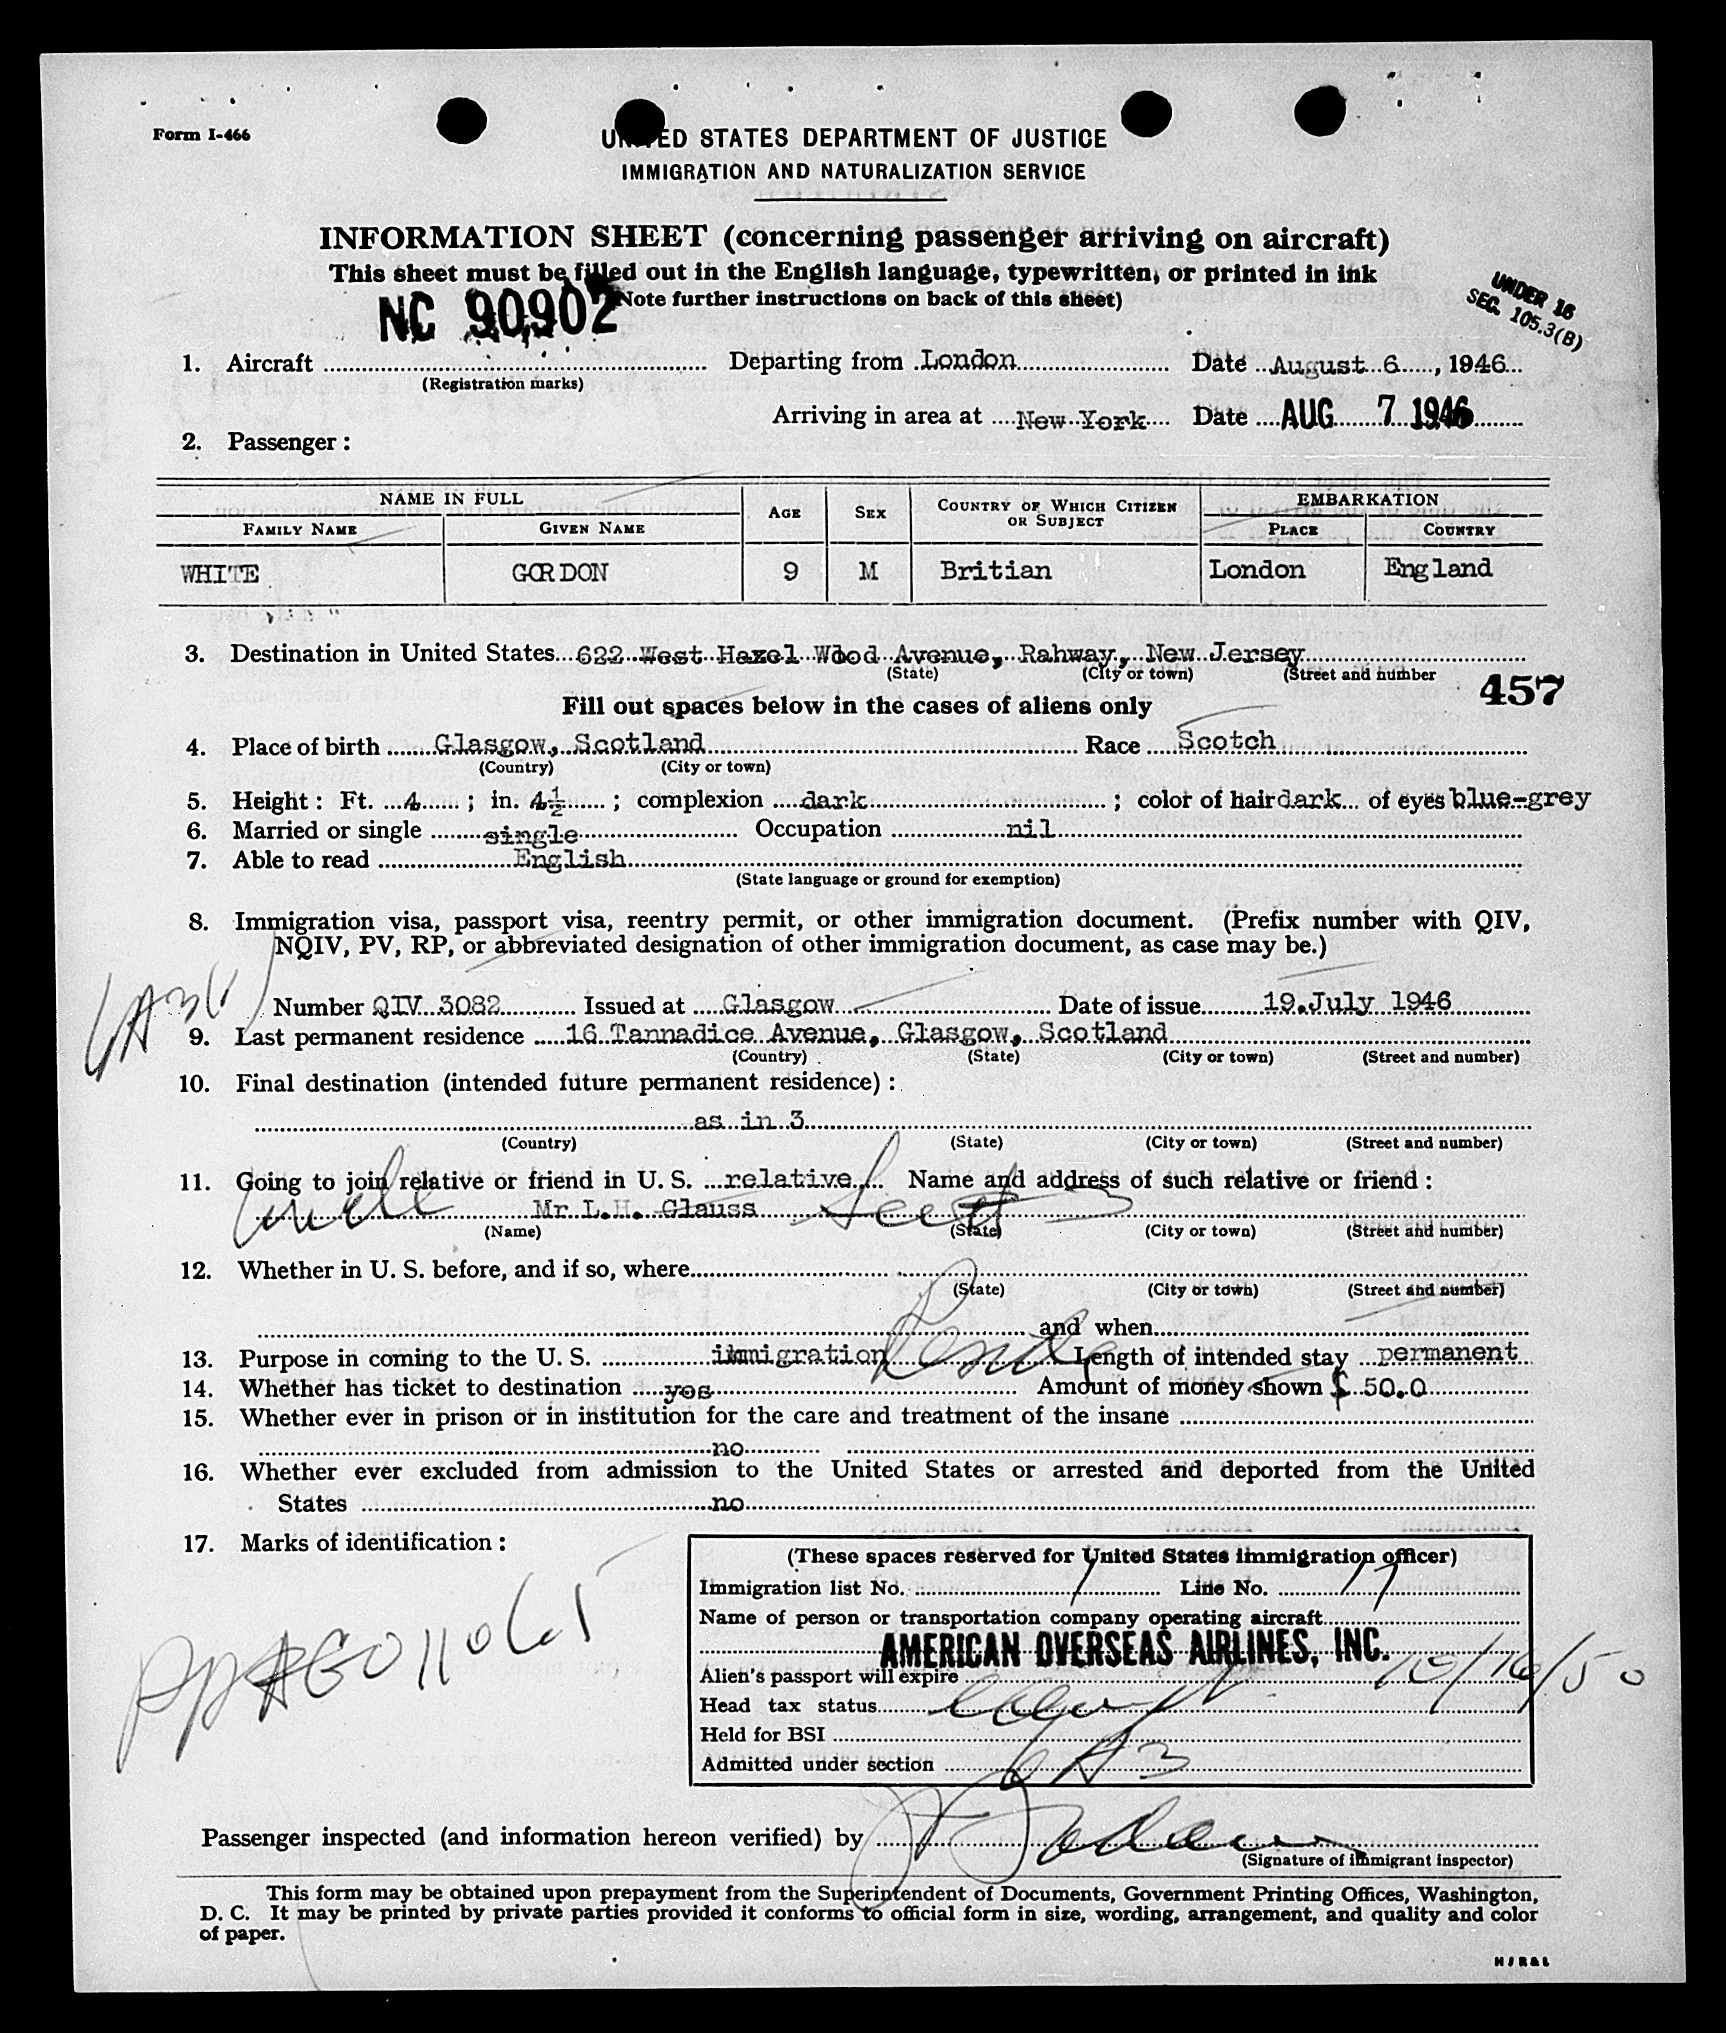 Form I-466
UNITED STATES DEPARTMENT OF JUSTICE
IMMIGRATION AND NATURALIZATION SERVICE
INFORMATION SHEET (concerning passenger arriving on aircraft)
This sheet must be filled out in the English language, typewritten, or printed in ink
(Note further instructions on back of this sheet)
NC 90902
UNDER 16
SEC. 105.3(B)
1. Aircraft (Registration marks) Departing from London Date August 6, 1946
Arriving in area at New York Date AUG 7 1946
2. Passenger:
NAME IN FULL
EMBARKATION
FAMILY NAME GIVEN NAME AGE SEX COUNTRY OF WHICH CITIZEN OR SUBJECT PLACE COUNTRY
WHITE GORDON 9 M Britian London England
3. Destination in United States 622 West Hazel Wood Avenue, Rahway, New Jersey
(State) (City or town) (Street and number
457
Fill out spaces below in the cases of aliens only
4. Place of birth Glasgow, Scotland Race Scotch
(Country) (City or town)
5. Height: Ft. 4; in. 4½; complexion dark; color of hair dark of eyes blue-grey
6. Married or single single Occupation nil
7. Able to read English
(State language or ground for exemption)
8. Immigration visa, passport visa, reentry permit, or other immigration document. (Prefix number with QIV,
NQIV, PV, RP, or abbreviated designation of other immigration document, as case may be.)
Number QIV 3082 Issued at Glasgow Date of issue 19.July 1946
9. Last permanent residence 16 Tannadice Avenue, Glasgow, Scotland
(Country) (State) (City or town) (Street and number)
10. Final destination (intended future permanent residence):
as in 3
(Country) (State) (City or town) (Street and number)
11. Going to join relative or friend in U. S. relative Name and address of such relative or friend:
uncle Mr L.H. Glauss
(Name) (State) (City or town) (Street and number)
12. Whether in U. S. before, and if so, where
(State) (City or town) (Street and number)
and when
13. Purpose in coming to the U. S. immigration Length of intended stay permanent
14. Whether has ticket to destination yes Amount of money shown $ 50.0
15. Whether ever in prison or in institution for the care and treatment of the insane
no
16. Whether ever excluded from admission to the United States or arrested and deported from the United
States no
17. Marks of identification:
(These spaces reserved for United States immigration officer)
Immigration list No. 1 Line No. 17
Name of person or transportation company operating aircraft
AMERICAN OVERSEAS AIRLINES, INC.
Alien's passport will expire 10/16/50
Head tax status
Held for BSI
Admitted under section 6A3
Passenger inspected (and information hereon verified) by
(Signature of immigrant inspector)
This form may be obtained upon prepayment from the Superintendent of Documents, Government Printing Offices, Washington,
D. C. It may be printed by private parties provided it conforms to official form in size, wording, arrangement, and quality and color
of paper.